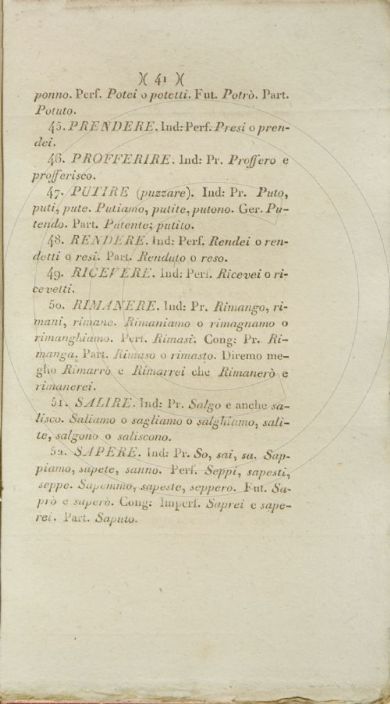 )( 41 )(
ponno. Perf. Potei o potetti. Fut. Potrò. Part.
Potuto.
45. PRENDERE. Ind: Perf. Presi o pren-
dei.
46. PROFFERIRE. Ind: Pr. Proffero e
profferisco.
47. PUTIRE (puzzare). Ind: Pr. Puto,
puti, pute. Putiamo, putite, putono. Ger. Pu-
tendo. Part. Putente; putito.
48. RENDERE. Ind: Perf. Rendei o ren-
detti o resi. Part. Renduto o reso.
49. RICEVERE. Ind: Perf. Ricevei o ri-
cevetti.
50. RIMANERE. Ind: Pr. Rimango, ri-
mani, rimane. Rimaniamo o rimagnamo o
rimanghiamo. Perf. Rimasi. Cong: Pr. Ri-
manga. Part. Rimaso o rimasto. Diremo me-
glio Rimarrò e Rimarrei che Rimanerò e
rimanerei.
51. SALIRE. Ind: Pr. Salgo e anche sa-
lisco. Saliamo o sagliamo o salghiamo, sali-
te, salgono o saliscono.
52. SAPERE. Ind: Pr. So, sai, sa. Sap-
piamo, sapete, sanno. Perf. Seppi, sapesti,
seppe. Sapemmo, sapeste, seppero. Fut. Sa-
prò e saperò. Cong: Imperf. Saprei e sape-
rei. Part. Saputo.